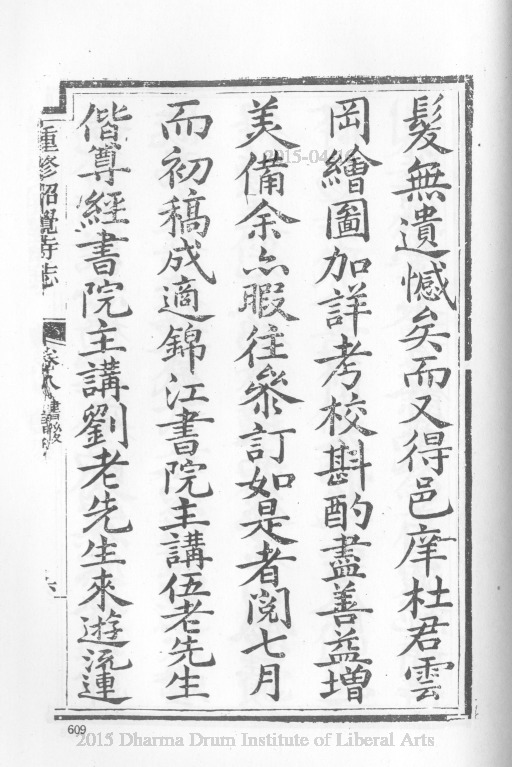 髮無遺憾矣而又得邑庠杜君雲
岡繪圖加詳考校斟酌盡善益增
美備余亦暇往叅訂如是者閱七月
而初稿成適錦江書院主講伍老先生
偕尊經書院主講劉老先生來遊流連
重修昭覺寺志
卷八
609
2015-04-16
2015 Dharma Drum Institute of Liberal Arts